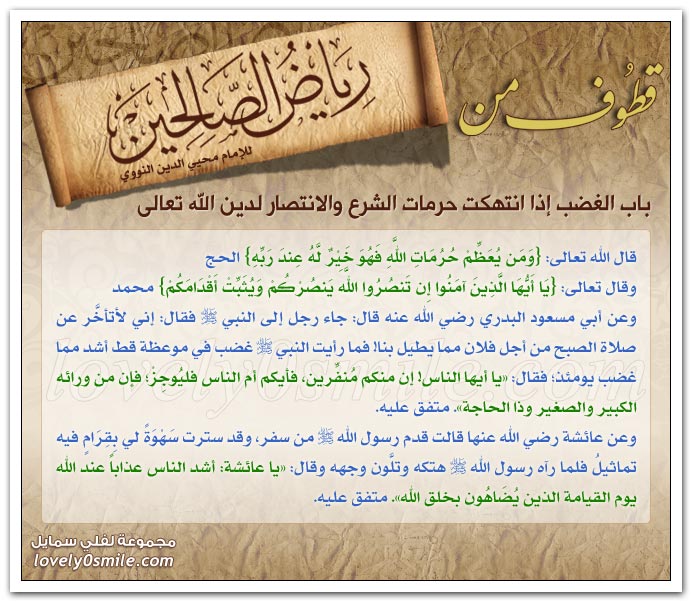 قطوف من
رِيَاضُ الصَّالِحِيْنَ
للإمام محيي الدين النووي
باب الغضب إذا انتهكت حرمات الشرع والانتصار لدين الله تعالى
قال الله تعالى: {وَمَن يُعَظِّمْ حُرُمَاتِ اللَّهِ فَهُوَ خَيْرٌ لَّهُ عِندَ رَبِّهِ} الحج
وقال تعالى: {يَا أَيُّهَا الَّذِينَ آمَنُوا إِن تَنصُرُوا اللَّهَ يَنصُرْكُمْ وَيُثَبِّتْ أَقْدَامَكُمْ} محمد
وعن أبي مسعود البدري رضي الله عنه قال: جاء رجل إلى النبي ﷺ فقال: إني لأتأخَّر عن
صلاة الصبح من أجل فلان مما يطيل بنا! فما رأيت النبي ﷺ غضب في موعظة قط أشد مما
غضب يومئذ؛ فقال: «يا أيها الناس! إن منكم مُنفِّرين، فأيكم أم الناس فليُوجِز؛ فإن من ورائه
الكبير والصغير وذا الحاجة». متفق عليه.
وعن عائشة رضي الله عنها قالت قدم رسول الله ﷺ من سفر، وقد سترت سَهْوَةً لي بِقِرَامٍ فيه
تماثيلُ فلما رآه رسول الله ﷺ هتكه وتلَّون وجهه وقال: «يا عائشة: أشد الناس عذاباً عند الله
يوم القيامة الذين يُضَاهُون بخلق الله». متفق عليه.
lovely0smile.com
مجموعة لفلي سمايل
lovely0smile.com